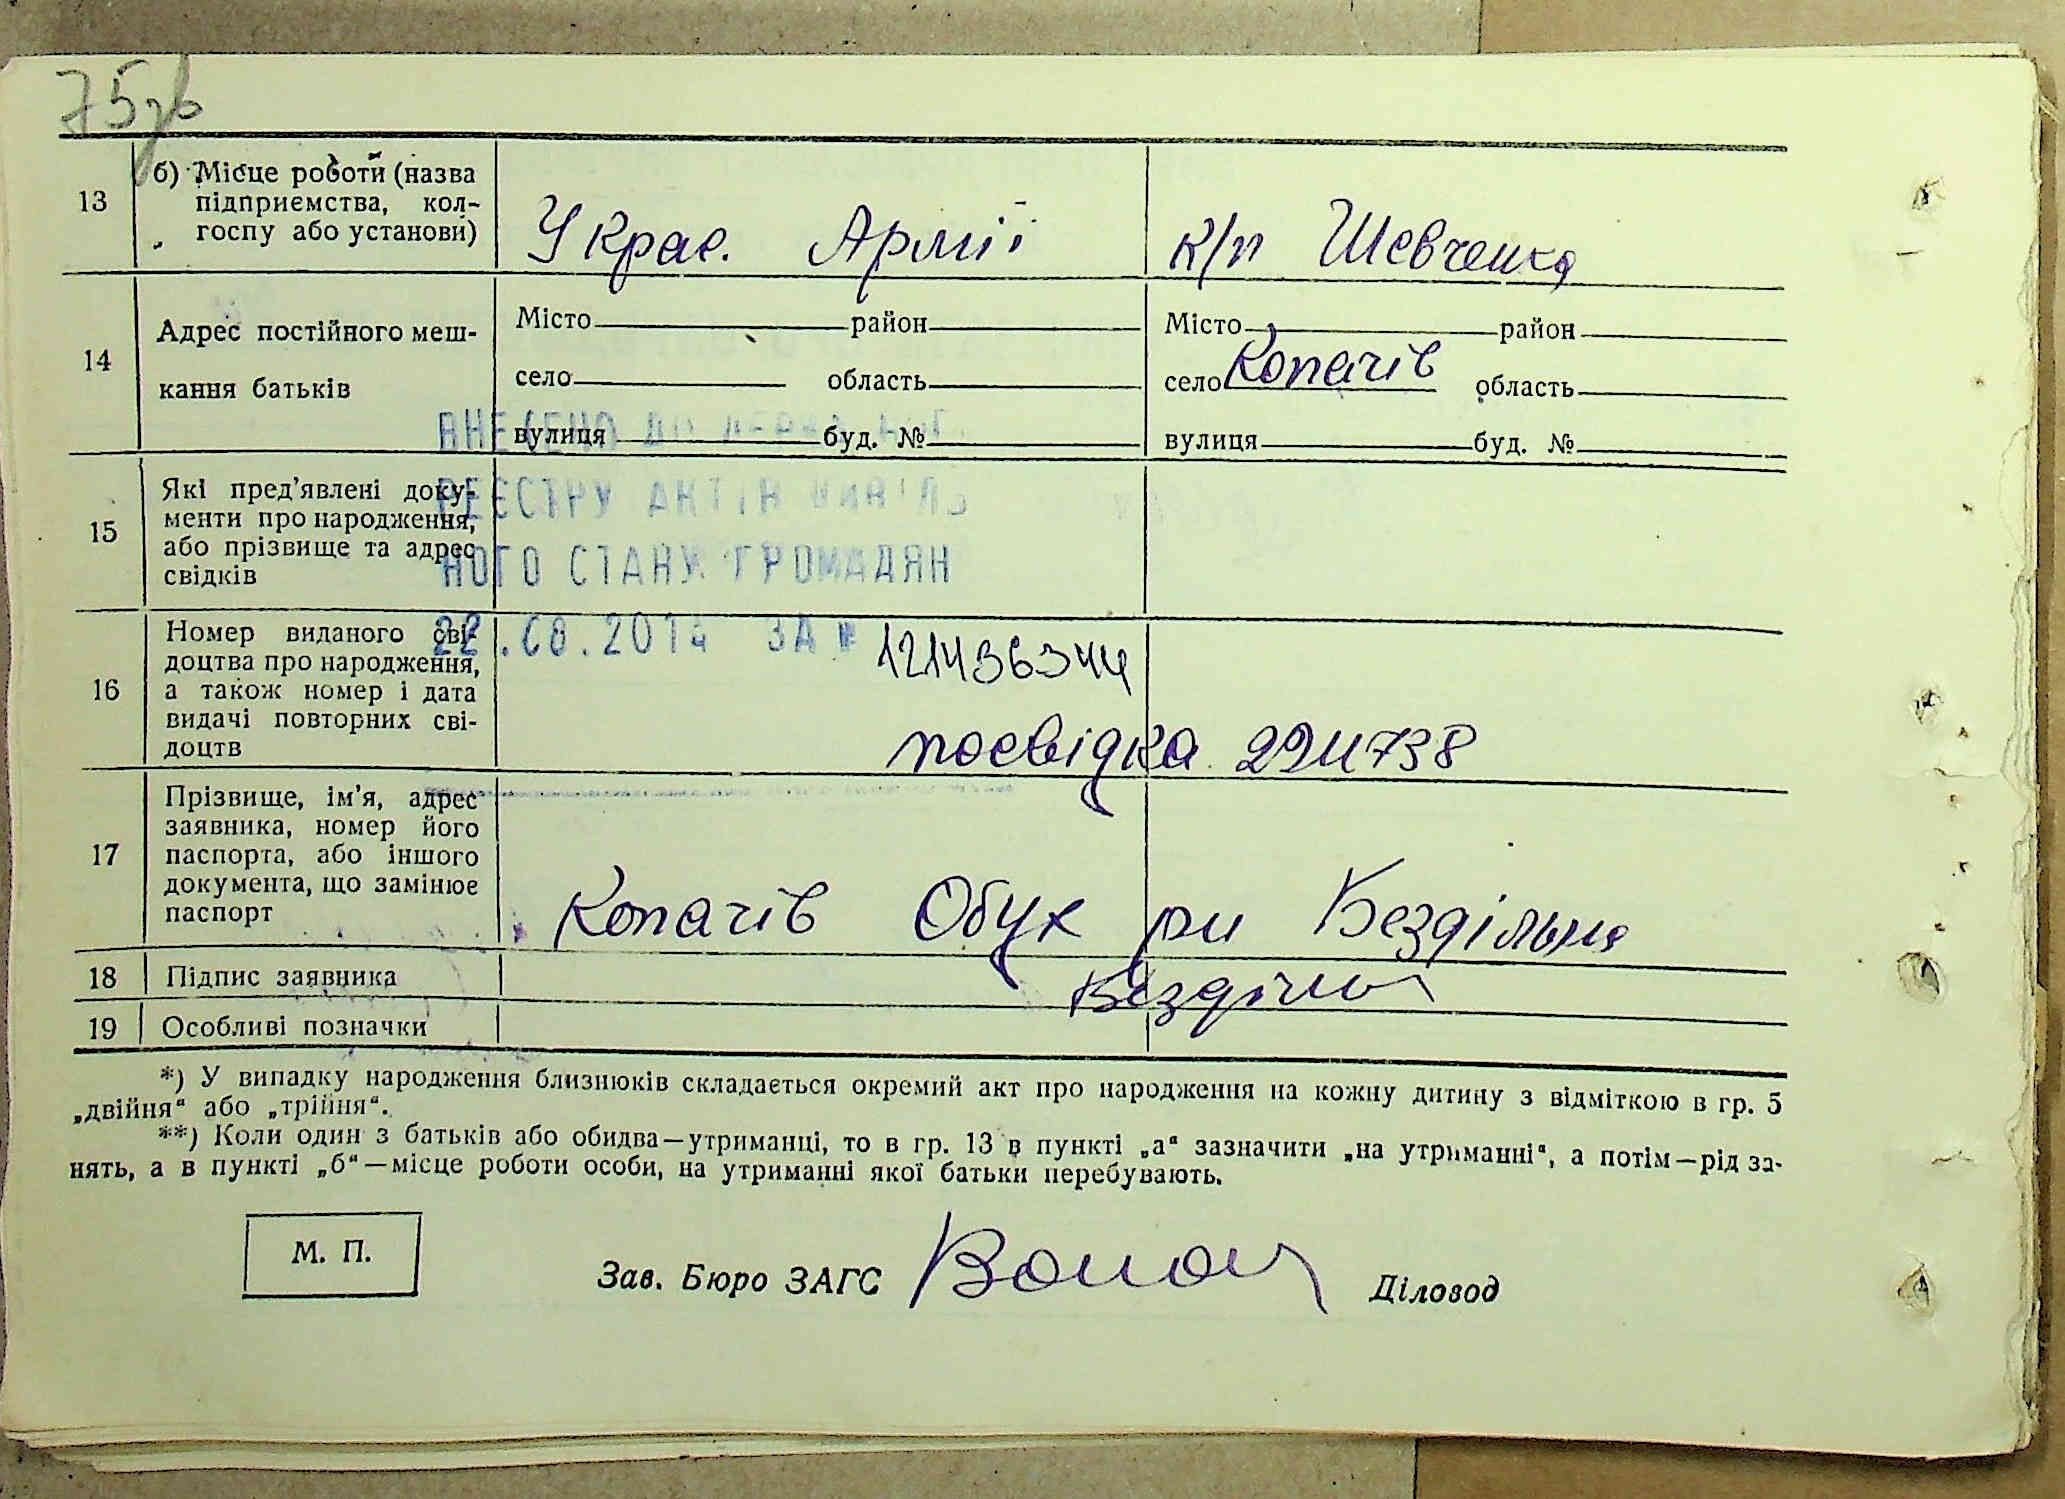 75зв
13
б) Місце роботи (назва
підприємства, кол-
госпу або установи)
У Крас. Армії
к/п Шевченка
14
Адрес постійного меш-
кання батьків
Місто район
село область
вулиця буд. №
Місто район
село Копачів область
вулиця буд. №
ВНЕСЕНО ДО ДЕРЖ
РЕЄСТРУ АКТІВ ЦИВІЛЬ
НОГО СТАНУ ГРОМАДЯН
22.08.201 ЗА №
15
Які пред'явлені доку-
менти про народження,
або прізвище та адрес
свідків
16
Номер виданого сві-
доцтва про народження,
а також номер і дата
видачі повторних сві-
доцтв
посвідка
17
Прізвище, ім'я, адрес
заявника, номер його
паспорта, або іншого
документа, що замінює
паспорт
Копачів Обух рн Бездільна
18 Підпис заявника
19 Особливі позначки
*) У випадку народження близнюків складається окремий акт про народження на кожну дитину з відміткою в гр. 5
„двійня“ або „трійня“.
**) Коли один з батьків або обидва—утриманці, то в гр. 13 в пункті „а“ зазначити „на утриманні“, а потім—рід за-
нять, а в пункті „б“—місце роботи особи, на утриманні якої батьки перебувають.
М. П.
Зав. Бюро ЗАГС
Діловод